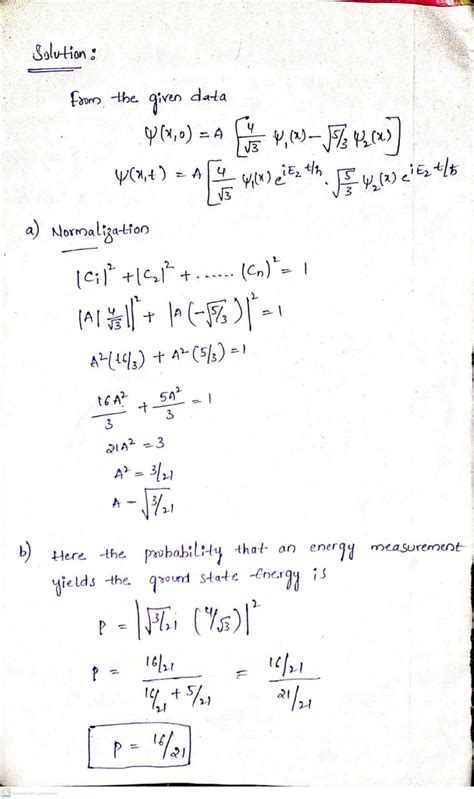 Solution :
From the given data
ψ(x,0) = A [4/√3 ψ₁(x) - √5/3 ψ₂(x)]
ψ(x,t) = A [4/√3 ψ₁(x) e^iE₂ t/ħ . √5/3 ψ₂(x) e^iE₂ t/ħ
a) Normalization
|C₁|² + |C₂|² + ...... (Cn)² = 1
|A| 4/√3||² + |A (-√5/3)|² = 1
A² (16/3) + A² (5/3) = 1
16A²/3 + 5A²/3 = 1
21A² = 3
A² = 3/21
A - √3/21
b) Here the probability that an energy measurement
yields the ground state Energy is
P = |√3/21 (4/√3)|²
P = 16/21 / 16/21 + 5/21 = 16/21 / 21/21
P = 16/21